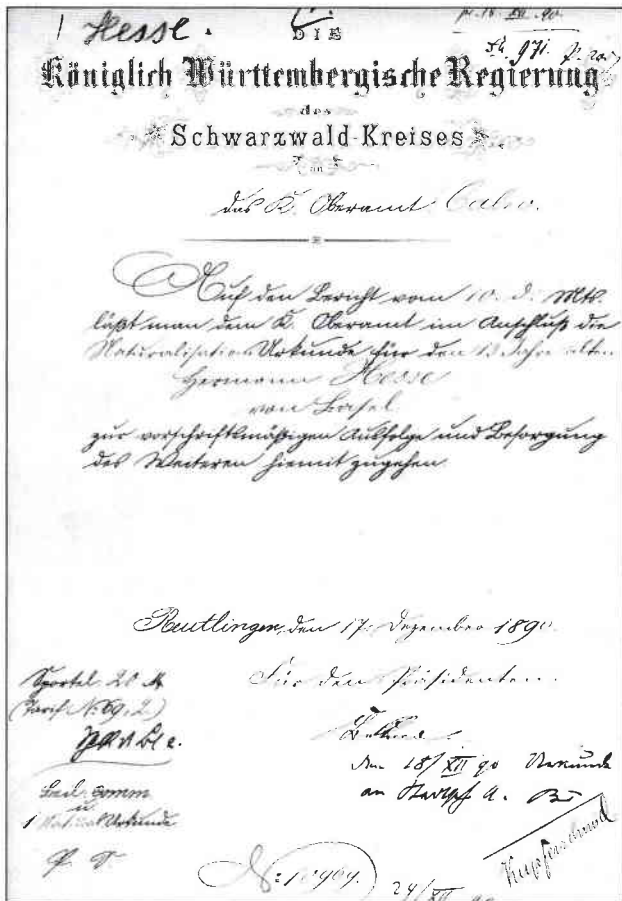 1 Hesse.
pr. 18. XII. 90.
DIE
971.
Königlich Württembergische Regierung
des
Schwarzwald-Kreises
an
das K. Oberamt Calw.
Auf den Bericht vom 10. d. Mts.
läßt man dem K. Oberamt im Anschluß die
Naturalisations Urkunde für den 13 Jahre alten
Hermann Hesse
von Basel
zur vorschriftsmäßigen Ausfolge und Besorgung
des Weiteren hiemit zugehen.
Reutlingen, den 17. Dezember 1890.
Für den Präsidenten.
Sportel 20 M
(Tarif N: 69, 2)
den 18/XII 90 Urkunde
an
Beil.
u.
1 Natural. Urkunde
N: 10969.
24/XII